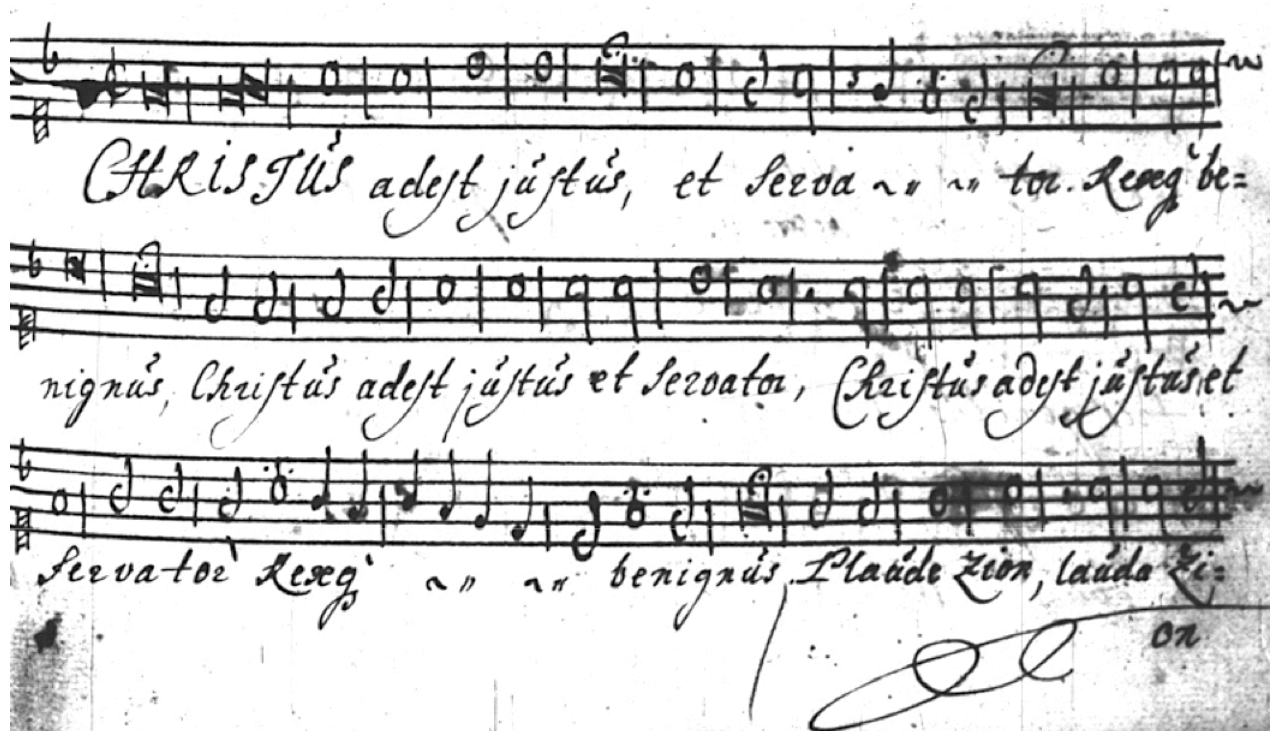 CHRISTŭS adest jŭstŭs, et Serva ~〃 ~〃 tor. Rexq̀ be=
nignŭs, Christŭs adest jŭstŭs et Servator, Christŭs adest jŭstŭs et
Servator Rexq̀ ~〃 ~〃 benignŭs. Plaŭde Zion, laŭda Zi=
on